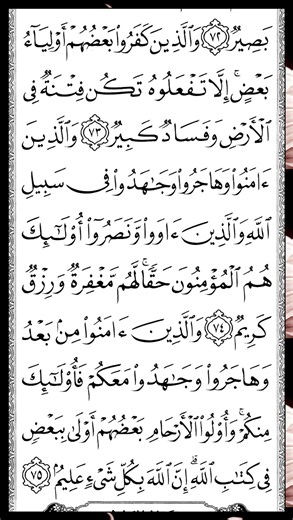 بَصِيرٌ ٧٢ وَٱلَّذِينَ كَفَرُوا۟ بَعْضُهُمْ أَوْلِيَآءُ
بَعْضٍ ۚ إِلَّا تَفْعَلُوهُ تَكُن فِتْنَةٌ فِى
ٱلْأَرْضِ وَفَسَادٌ كَبِيرٌ ٧٣ وَٱلَّذِينَ
ءَامَنُوا۟ وَهَاجَرُوا۟ وَجَٰهَدُوا۟ فِى سَبِيلِ
ٱللَّهِ وَٱلَّذِينَ ءَاوَوا۟ وَّنَصَرُوٓا۟ أُو۟لَٰٓئِكَ
هُمُ ٱلْمُؤْمِنُونَ حَقًّا ۚ لَّهُم مَّغْفِرَةٌ وَرِزْقٌ
كَرِيمٌ ٧٤ وَٱلَّذِينَ ءَامَنُوا۟ مِنۢ بَعْدُ
وَهَاجَرُوا۟ وَجَٰهَدُوا۟ مَعَكُمْ فَأُو۟لَٰٓئِكَ
مِنكُمْ ۚ وَأُو۟لُوا۟ ٱلْأَرْحَامِ بَعْضُهُمْ أَوْلَىٰ بِبَعْضٍ
فِى كِتَٰبِ ٱللَّهِ ۗ إِنَّ ٱللَّهَ بِكُلِّ شَىْءٍ عَلِيمٌۢ ٧٥